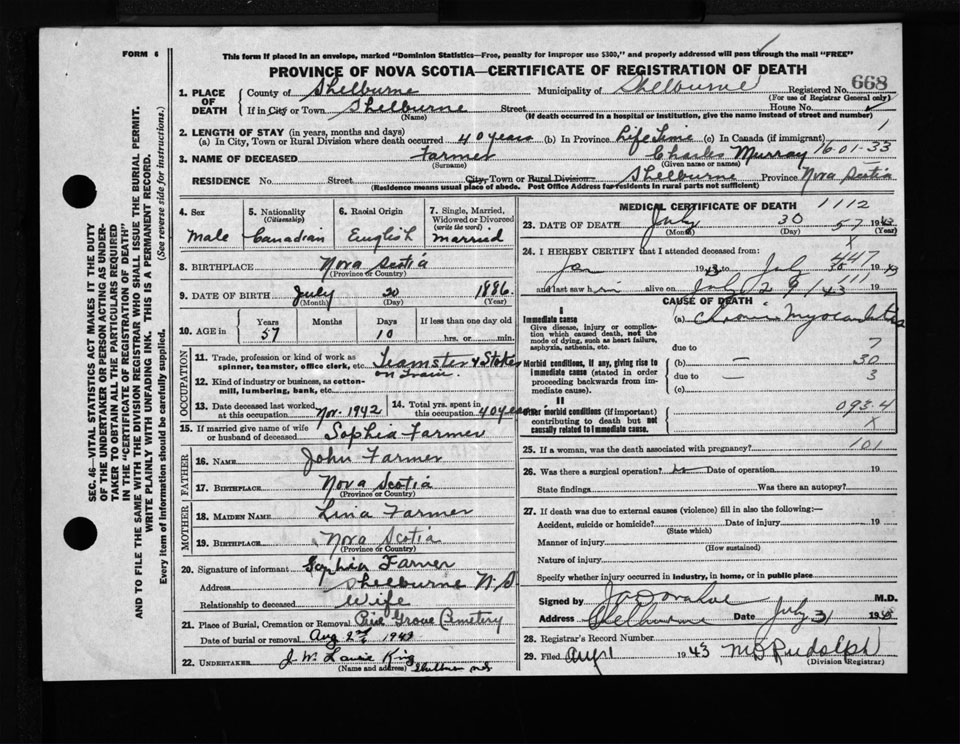 FORM 6
This form if placed in an envelope, marked "Dominion Statistics—Free, penalty for improper use $300," and properly addressed will pass through the mail "FREE"
PROVINCE OF NOVA SCOTIA—CERTIFICATE OF REGISTRATION OF DEATH
668
1. PLACE OF DEATH
County of Shelburne Municipality of Shelburne Registered No.
(For use of Registrar General only)
If in City or Town Shelburne Street House No.
(Name) (If death occurred in a hospital or institution, give the name instead of street and number)
2. LENGTH OF STAY (in years, months and days)
(a) In City, Town or Rural Division where death occurred 40 years (b) In Province Life Time (c) In Canada (if immigrant) 1
3. NAME OF DECEASED Farmer Charles Murray 16-01-33
(Surname) (Given name or names)
RESIDENCE No. Street City, Town or Rural Division Shelburne Province Nova Scotia
(Residence means usual place of abode. Post Office Address for residents in rural parts not sufficient)
4. Sex
Male
5. Nationality
(Citizenship)
Canadian
6. Racial Origin
English
7. Single, Married, Widowed or Divorced
(write the word)
married
8. BIRTHPLACE Nova Scotia
(Province or Country)
9. DATE OF BIRTH July 20 1886
(Month) (Day) (Year)
10. AGE in Years Months Days If less than one day old
57 10 hrs. or min.
OCCUPATION
11. Trade, profession or kind of work as spinner, teamster, office clerk, etc. Teamster & Stoker on Train.
12. Kind of industry or business, as cotton-mill, lumbering, bank, etc.
13. Date deceased last worked at this occupation Nov. 1942
14. Total yrs. spent in this occupation 40 years
15. If married give name of wife or husband of deceased Sophia Farmer
FATHER
16. NAME John Farmer
17. BIRTHPLACE Nova Scotia
(Province or Country)
MOTHER
18. MAIDEN NAME Farmer
19. BIRTHPLACE Nova Scotia
(Province or Country)
20. Signature of informant Sophia Farmer
Address Shelburne N.S
Relationship to deceased Wife
21. Place of Burial, Cremation or Removal Pine Grove Cemetery
Date of burial or removal Aug 2nd 1943
22. UNDERTAKER J. W. King
(Name and address) Shelburne N.S
MEDICAL CERTIFICATE OF DEATH 1112
23. DATE OF DEATH July 30 57 1943
(Month) (Day) (Year)
X
24. I HEREBY CERTIFY that I attended deceased from: 447
Jan 1943 to July 30 19
and last saw him alive on July 29 1943
CAUSE OF DEATH
I
Immediate cause
Give disease, injury or complication which caused death, not the mode of dying, such as heart failure, asphyxia, asthenia, etc.
(a) Chronic Myocarditis
due to 7
Morbid conditions, if any, giving rise to immediate cause (stated in order proceeding backwards from immediate cause).
(b) — 30
due to — 3
(c)
II
Other morbid conditions (if important) contributing to death but not causally related to immediate cause.
093.4
X
25. If a woman, was the death associated with pregnancy? 101
26. Was there a surgical operation? Date of operation 19
State findings Was there an autopsy?
27. If death was due to external causes (violence) fill in also the following:—
Accident, suicide or homicide? Date of injury 19
(State which)
Manner of injury
(How sustained)
Nature of injury
Specify whether injury occurred in industry, in home, or in public place
Signed by M.D.
Address Shelburne Date July 31 1943
28. Registrar's Record Number
29. Filed Aug 1 1943 Rudolph
(Division Registrar)
SEC. 46—VITAL STATISTICS ACT MAKES IT THE DUTY
OF THE UNDERTAKER OR PERSON ACTING AS UNDER-
TAKER TO OBTAIN ALL THE PARTICULARS REQUIRED
IN THE "CERTIFICATE OF REGISTRATION OF DEATH"
AND TO FILE THE SAME WITH THE DIVISION REGISTRAR WHO SHALL ISSUE THE BURIAL PERMIT.
WRITE PLAINLY WITH UNFADING INK. THIS IS A PERMANENT RECORD.
Every item of information should be carefully supplied. (See reverse side for instructions.)